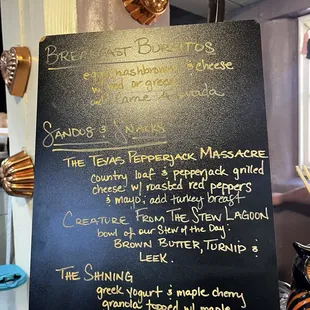 BREAKFAST BURRITOS
eggs, hashbrowns & cheese
w/ red or green
w/ carne adovada
SANDOS & SNACKS
THE TEXAS PEPPERJACK MASSACRE
country loaf & pepperjack grilled
cheese w/ roasted red peppers
& mayo; add turkey breast
CREATURE FROM THE STEW LAGOON
bowl of our Stew of the Day:
BROWN BUTTER, TURNIP &
LEEK.
THE SHINING
greek yogurt & maple cherry
granola topped w/ maple